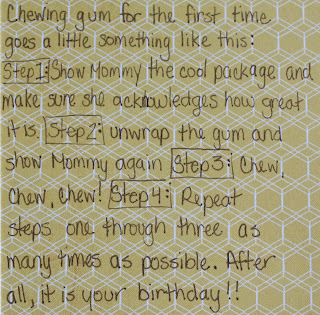 Chewing gum for the first time
goes a little something like this:
Step 1: Show Mommy the cool package and
make sure she acknowledges how great
it is. Step 2: unwrap the gum and
show Mommy again Step 3: Chew,
Chew, Chew! Step 4: Repeat
steps one through three as
many times as possible. After
all, it is your birthday!!